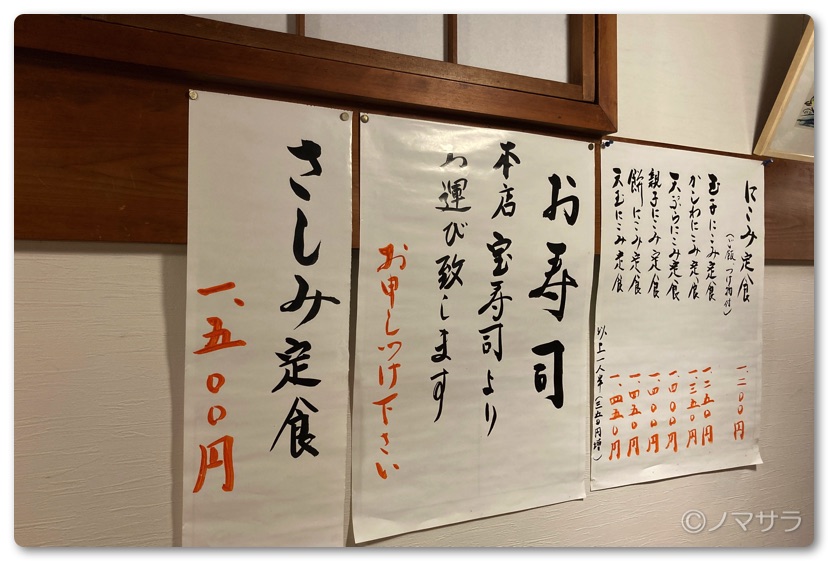 にこみ定食
(ご飯、つけ物付)
一、二〇〇円
玉子にこみ定食
一、二五〇円
かしわにこみ定食
一、三五〇円
天ぷらにこみ定食
一、四〇〇円
親子にこみ定食
一、四〇〇円
餅にこみ定食
一、四五〇円
天玉にこみ定食
一、四五〇円
以上一人半(三五〇円増)
お寿司
本店宝寿司より
お運び致します
お申しつけ下さい
さしみ定食
一、五〇〇円
©ノマサラ